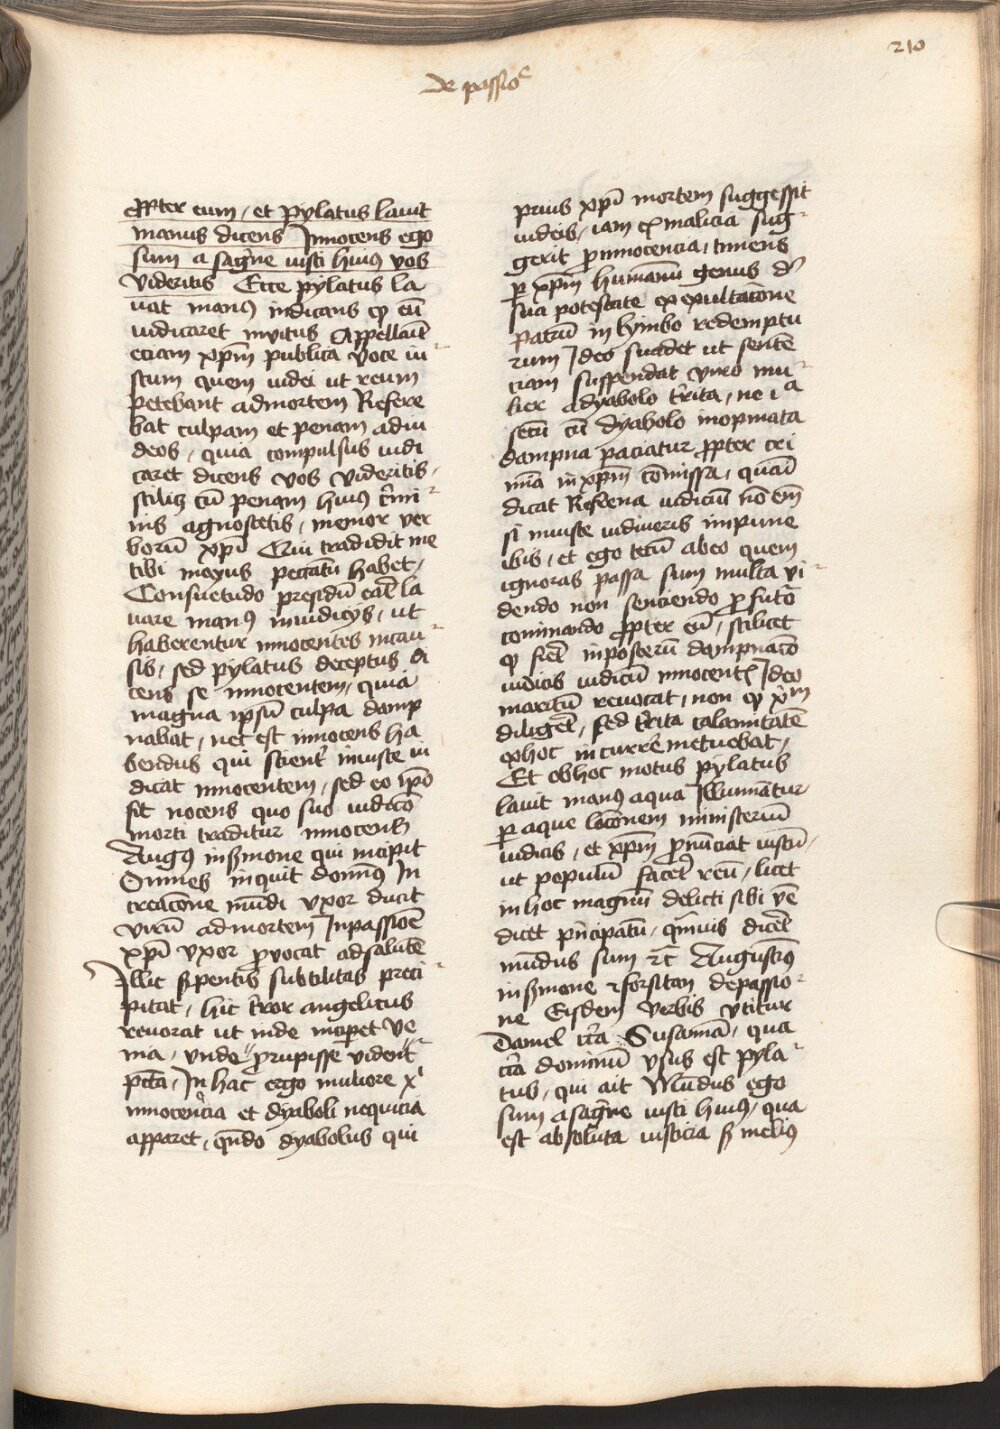 210
de passioe
ppter eum, et pylatus lauit
manus dicens Innocens ego
sum a sagwne iusti huiꝰ vos
videritis Ecce pylatus la
uat manꝰ indicans ꝙ eū
iudicaret inuitus Appellauit
eciam xpm̄ publica voce iu
stum quem iudei ut reum
petebant admortem Refere
bat culpam et penam adiu
deos, quia compulsus iudi
caret dicens vos videritis,
scilicꝫ cū penam huiꝰ cri̅mi
nis agnoscetis, memor ver
borū xpi̅ Qui tradidit me
tibi mayus peccatū habet,
Consuetudo presidū erat̅ la
uare manꝰ iniudicÿs, ut
haberentur innocentes incau
sis, sed pylatus deceptus di
cens se innocentem, quia
magna ipsū culpa damp
nabat, nec est innocens ha
bendus qui scient̓ iniuste iu
dicat innocentem, sed eo ipō
fit nocens quo suo iudicō
morti traditur innocens
Augꝰ insmone qui incipit
Omnes inquit domnꝰ In
creacōne mūdi vxor ducit
virū admortem Inpassioē
xpi̅ vxor ꝓuocat adsalutē
Illic spentis subtilitas preci
pitat, hic t̓ror angelicus
reuocat ut inde incip̱et ve
nia, vnde ꝓrupisse vident̅
pctā, In hac ergo muliere xi̅
innocencia et dyaboli nequicia
apparet, qn̄do dyabolus qui
prius xpi̅ mortem suggessit
iudeis, iam ex malicia sug
gerit pinnocencia, timens
ꝑ xpm̄ humanū genus de̅
sua potestate ex exultacōne
patrū in lymbo redemptu
rum Ideo suadet ut senten̄
ciam suspendat viro mu
lier adyabolo t̓rita, ne ia̅
secū cū dyabolo inopinata
dampna paciatur ꝓpter cri
mīa in xpm̄ cōmissa, quasi̅
dicat Refrena iudiciū nō em̄
si iniuste iudicaueris impune
ibis, et ego tecū abeo quem
ignoras passa sum multa vi
dendo non senciendo ꝓ futō
cominando ꝓpter eū, scilicet
ꝙ fiet̅ inposterū dampnacō
iudicis iudiciū innocent̅ Ideo
maritū reuocat, non ꝙ xm̄
diliget̅, sed t̓rita calamitatē
exhoc incurrere metuebat,
Et obhoc motus pylatus
lauit manꝰ aqua Illuminatur
ꝑ aque locōnem ministeriū
iudicis, et xpm̄ ꝓnūciat iustū,
ut populū facet̅ reū, licet
inhoc magnū delicti sibi vē
dicet pn̄cipatū, qm̄uis dicet̅
mūdus sum ⁊c̄ Augustinꝰ
insmone ⁊forsitan depassio
ne Eisdem verbis vtitur
Daniel cir̅ca Susannā, qua
cir̅ca dominū vsus est pyla
tus, qui ait Mūdus ego
sum asagw̄ne iusti huiꝰ, qua
est absoluta iusticia sꝫ meliꝰ